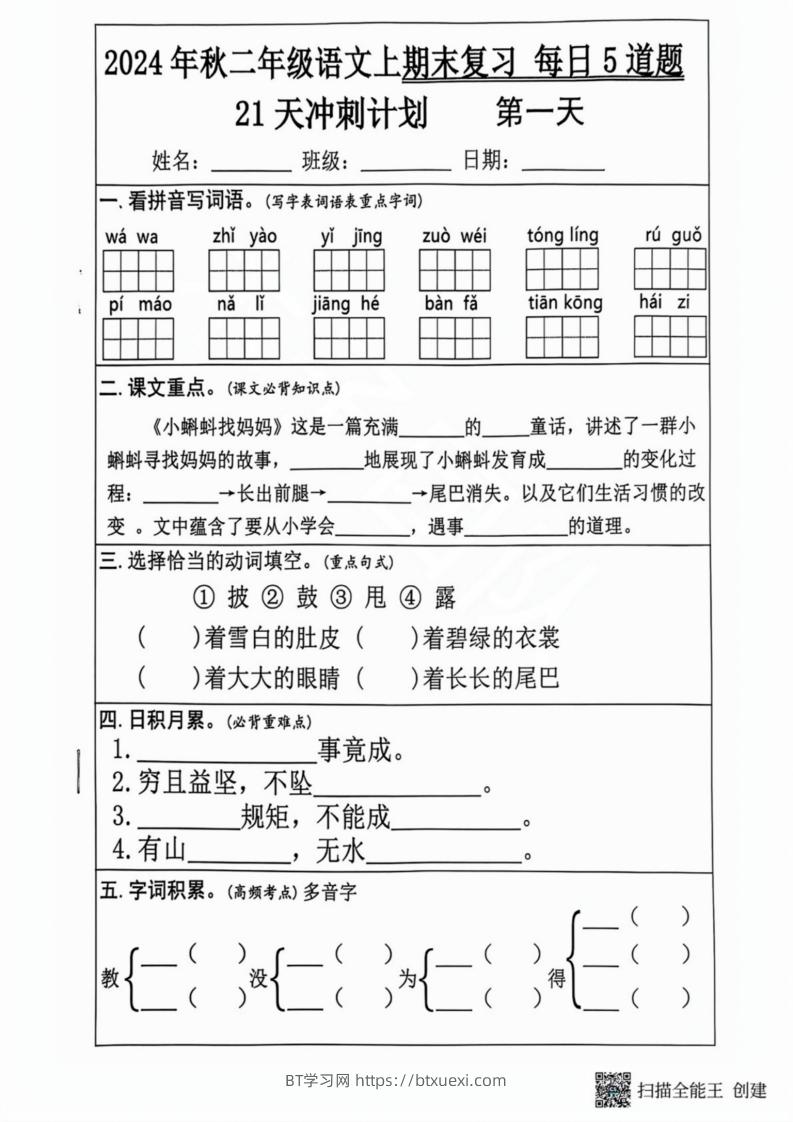 2024年秋二年级语文上期末复习 每日5道题
21天冲刺计划 第一天
姓名：______ 班级：______ 日期：______
一.看拼音写词语。(写字表词语表重点字词)
wá wa zhǐ yào yǐ jīng zuò wéi tóng líng rú guǒ
pí máo nǎ lǐ jiāng hé bàn fǎ tiān kōng hái zi
二.课文重点。(课文必背知识点)
《小蝌蚪找妈妈》这是一篇充满______的____童话，讲述了一群小
蝌蚪寻找妈妈的故事，______地展现了小蝌蚪发育成______的变化过
程：______→长出前腿→______→尾巴消失。以及它们生活习惯的改
变 。文中蕴含了要从小学会______，遇事________的道理。
三.选择恰当的动词填空。(重点句式)
① 披 ② 鼓 ③ 甩 ④ 露
( )着雪白的肚皮 ( )着碧绿的衣裳
( )着大大的眼睛 ( )着长长的尾巴
四.日积月累。(必背重难点)
1.____________事竟成。
2.穷且益坚，不坠____________。
3.________规矩，不能成________。
4.有山________，无水__________。
五.字词积累。(高频考点)多音字
教 ___( ) ___( ) 没 ___( ) ___( ) 为 ___( ) ___( ) 得 ___( ) ___( ) ___( )
BT学习网 https://btxuexi.com
扫描全能王 创建